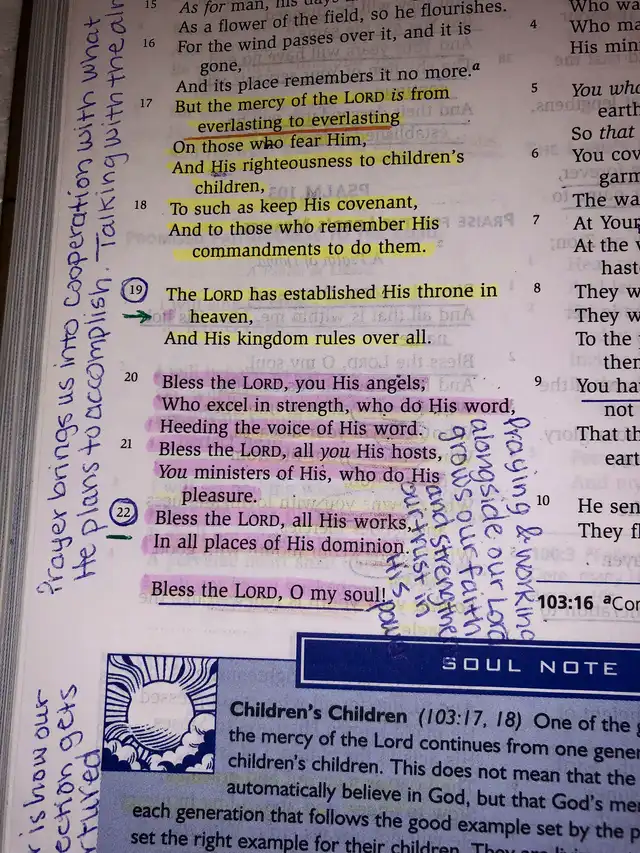 15 As for man, his days
As a flower of the field, so he flourishes.
16 For the wind passes over it, and it is
gone,
And its place remembers it no more.a
17 But the mercy of the LORD is from
everlasting to everlasting
On those who fear Him,
And His righteousness to children's
children,
18 To such as keep His covenant,
And to those who remember His
commandments to do them.
19 The LORD has established His throne in
heaven,
And His kingdom rules over all.
20 Bless the LORD, you His angels,
Who excel in strength, who do His word,
Heeding the voice of His word.
21 Bless the LORD, all you His hosts,
You ministers of His, who do His
pleasure.
22 Bless the LORD, all His works,
In all places of His dominion.
Bless the LORD, O my soul!
Prayer brings us into cooperation with what
He plans to accomplish. Talking with the
Praying & working
alongside our Lord
grows our faith
and strengthens
our trust in
His power
is how our
gets
Who
4 Who
His
5 You
earth
So that
6 You
The
7 At
At the
8 They
They
To the
9 You
not
That
earth
10 He
They
103:16 a
SOUL NOTE
Children's Children (103:17, 18) One of the
the mercy of the Lord continues from one
children's children. This does not mean that the
automatically believe in God, but that God's
each generation that follows the good example set by the
set the right example for their children. They are